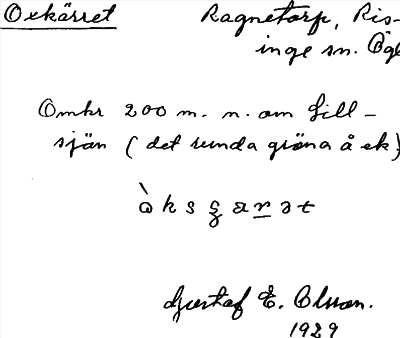 Oxkärret
Ragnetorp, Ris-
inge sn. Ögl
Omkr 200 m. n. om Gill-
sjön (det runda gröna å ek)
Gustaf E. Olsson.
1929